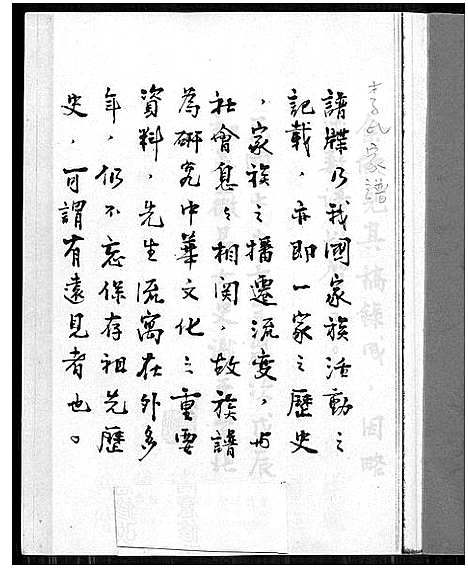 李氏家譜
譜牒乃我國家族活動之
記載，亦即一家之歷史
，家族之播遷流變，与
社會息々相関，故族譜
為研究中華文化之重要
資料，先生流寓在外多
年，仍不忘保存祖先歷
史，可謂有遠見者也。